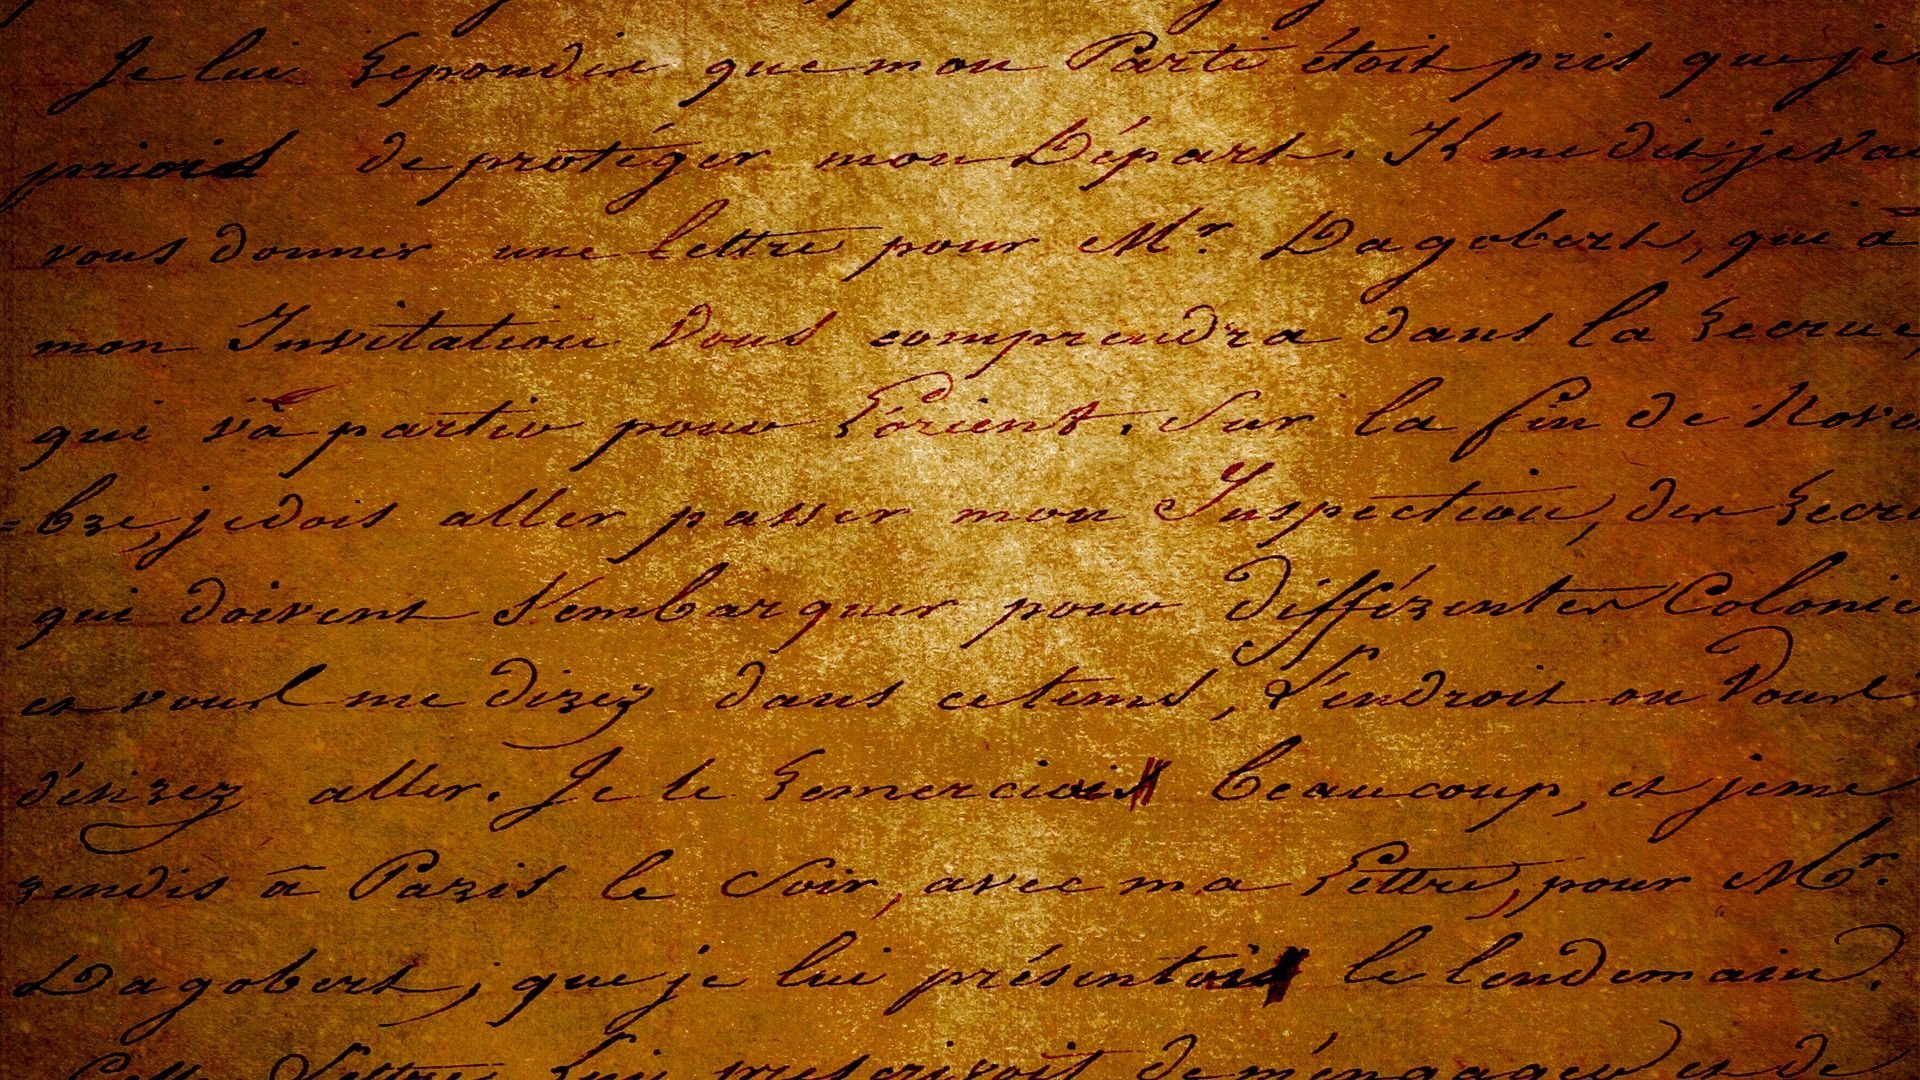 Je lui répondis que mon Parti étoit pris que je
priois de protéger mon Départ. Il me dit; je va
vous donner une lettre pour Mr. Dagobert, qui à
mon Invitation vous comprendra dans la recrue,
qui va partir pour L'orient. Sur la fin de Nove
=bre, je dois aller passer mon Inspection, des recru
qui doivent s'embarquer pour différentes Colonie
et vous me direz dans ce tems, L'endroit ou vous
désirez aller. Je le remerciois beaucoup, et je me
rendis à Paris le Soir, avec ma Lettre, pour Mr.
Dagobert; que je lui présentois le lendemain.
Cette Lettre lui prescrivoit de ménager et de